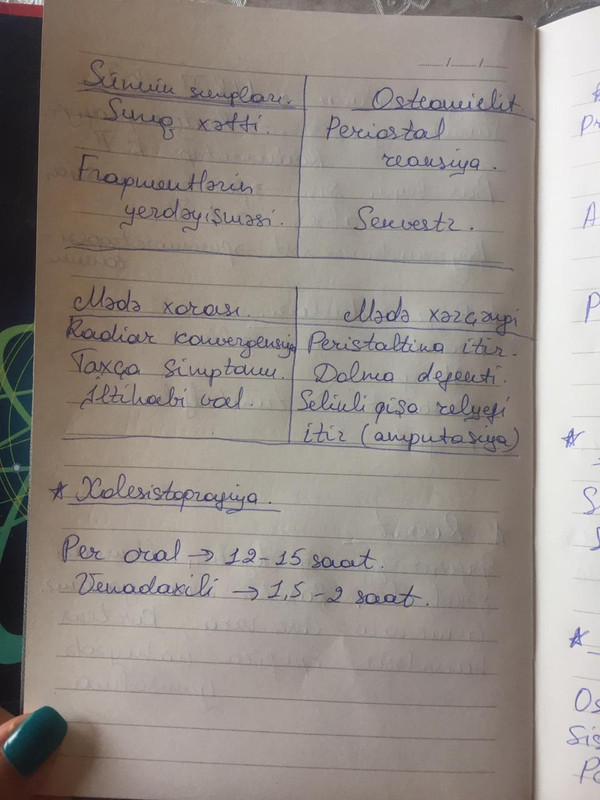 Sümük sınıqları. Osteomielit
Sınıq xətti. Periostal
reaksiya.
Fraqmentlərin
yerdəyişməsi. Sekvestr.
Mədə xorası. Mədə xərçəngi
Radiar konvergensiya Peristaltika itir.
Taxça simptomu. Dolma defekti.
İltihabi val. Selikli qişa relyefi
itir (amputasiya)
* Xolesistoqrafiya.
Per oral → 12-15 saat.
Venadaxili → 1,5 - 2 saat.